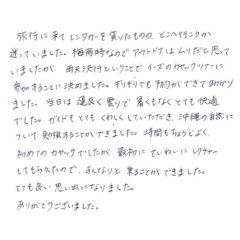 旅行に来てレンタカーを買りたものの どこへ行こうか
迷っていました。梅雨時なのでアウトドアはムリだと思って
いましたが、雨天決行ということで イーズのカヤックツアーに
参加することに決めました。ギリギリでも予約ができて助かり
ました。当日は 運良く曇りで 暑くもなく とても快適
でした。ガイドもとても くわしくしていただき、沖縄の自然に
ついて 勉強することができました。時間もちょうどよく、
初めてのカヤックでしたが 最初に ていねいに レクチャー
してもらえたので、すんなりと 乗ることができました。
とても良い思い出になりました。
ありがとうございました。